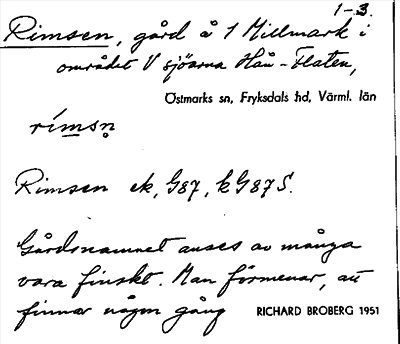 1-3.
Rimsen, gård å 1 Millmark i
området V sjöarna Hån - Flaten,
Östmarks sn, Fryksdals hd, Värml. län
rímsn̥
Rimsen ek, G87, kG87S.
Gårdsnamnet anses av många
vara finskt. Man förmenar, att
finnar någon gång RICHARD BROBERG 1951